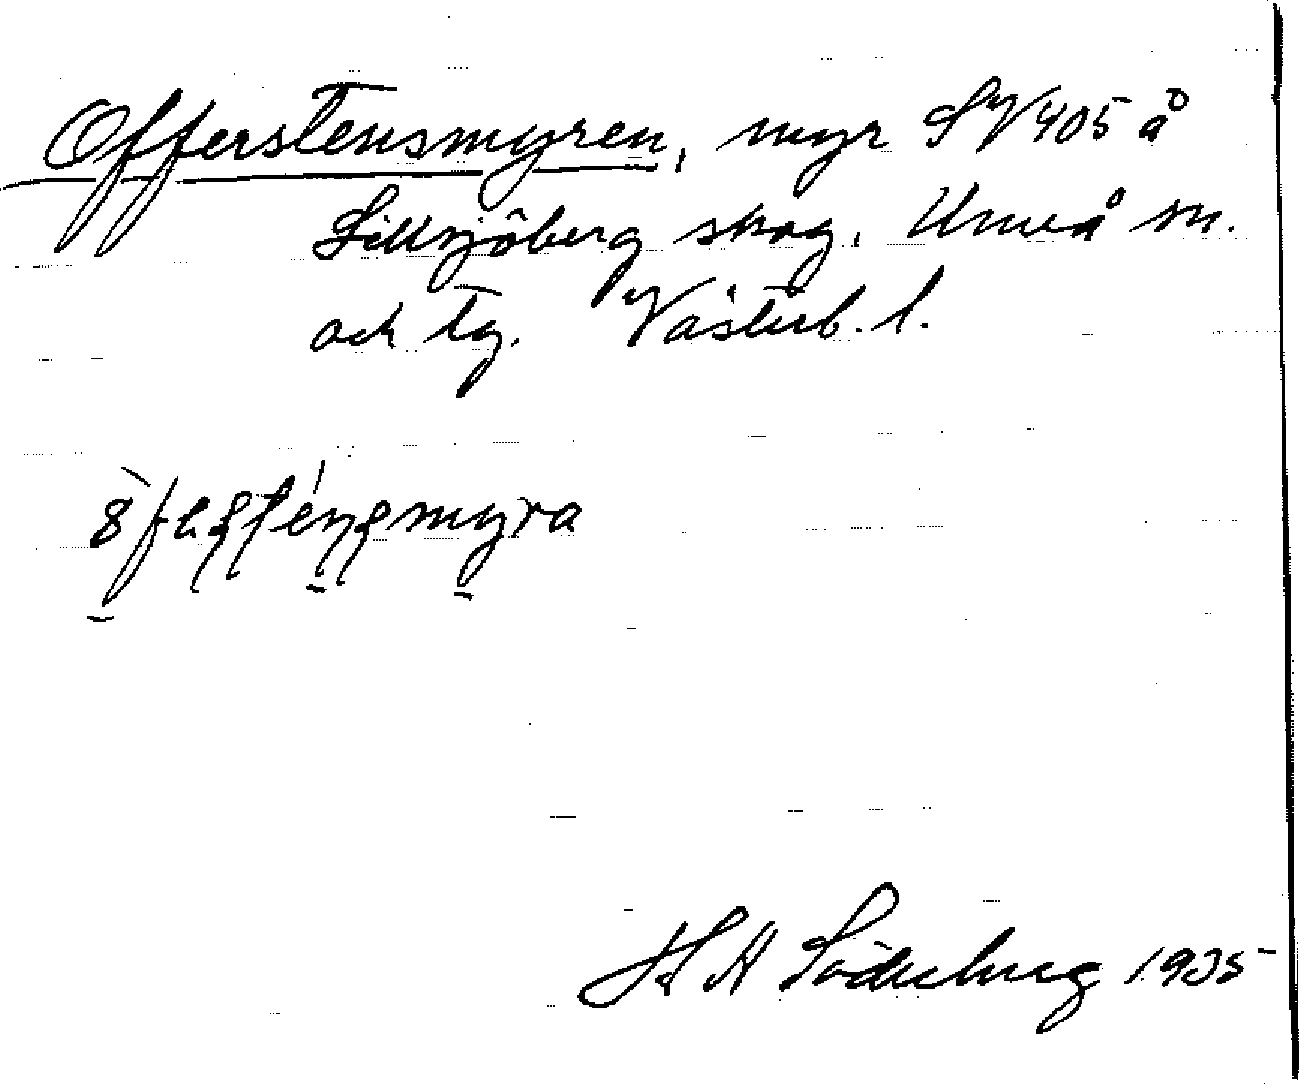 Offerstensmyren, myr SV 405 å
Lillsjöberg skog. Umeå sn.
och tg. Västerb. l.
H H Söderberg 1935